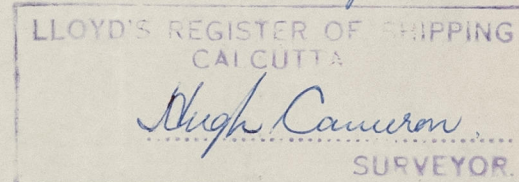 LLOYD'S REGISTER OF SHIPPING
CALCUTTA
Hugh Cameron
SURVEYOR.